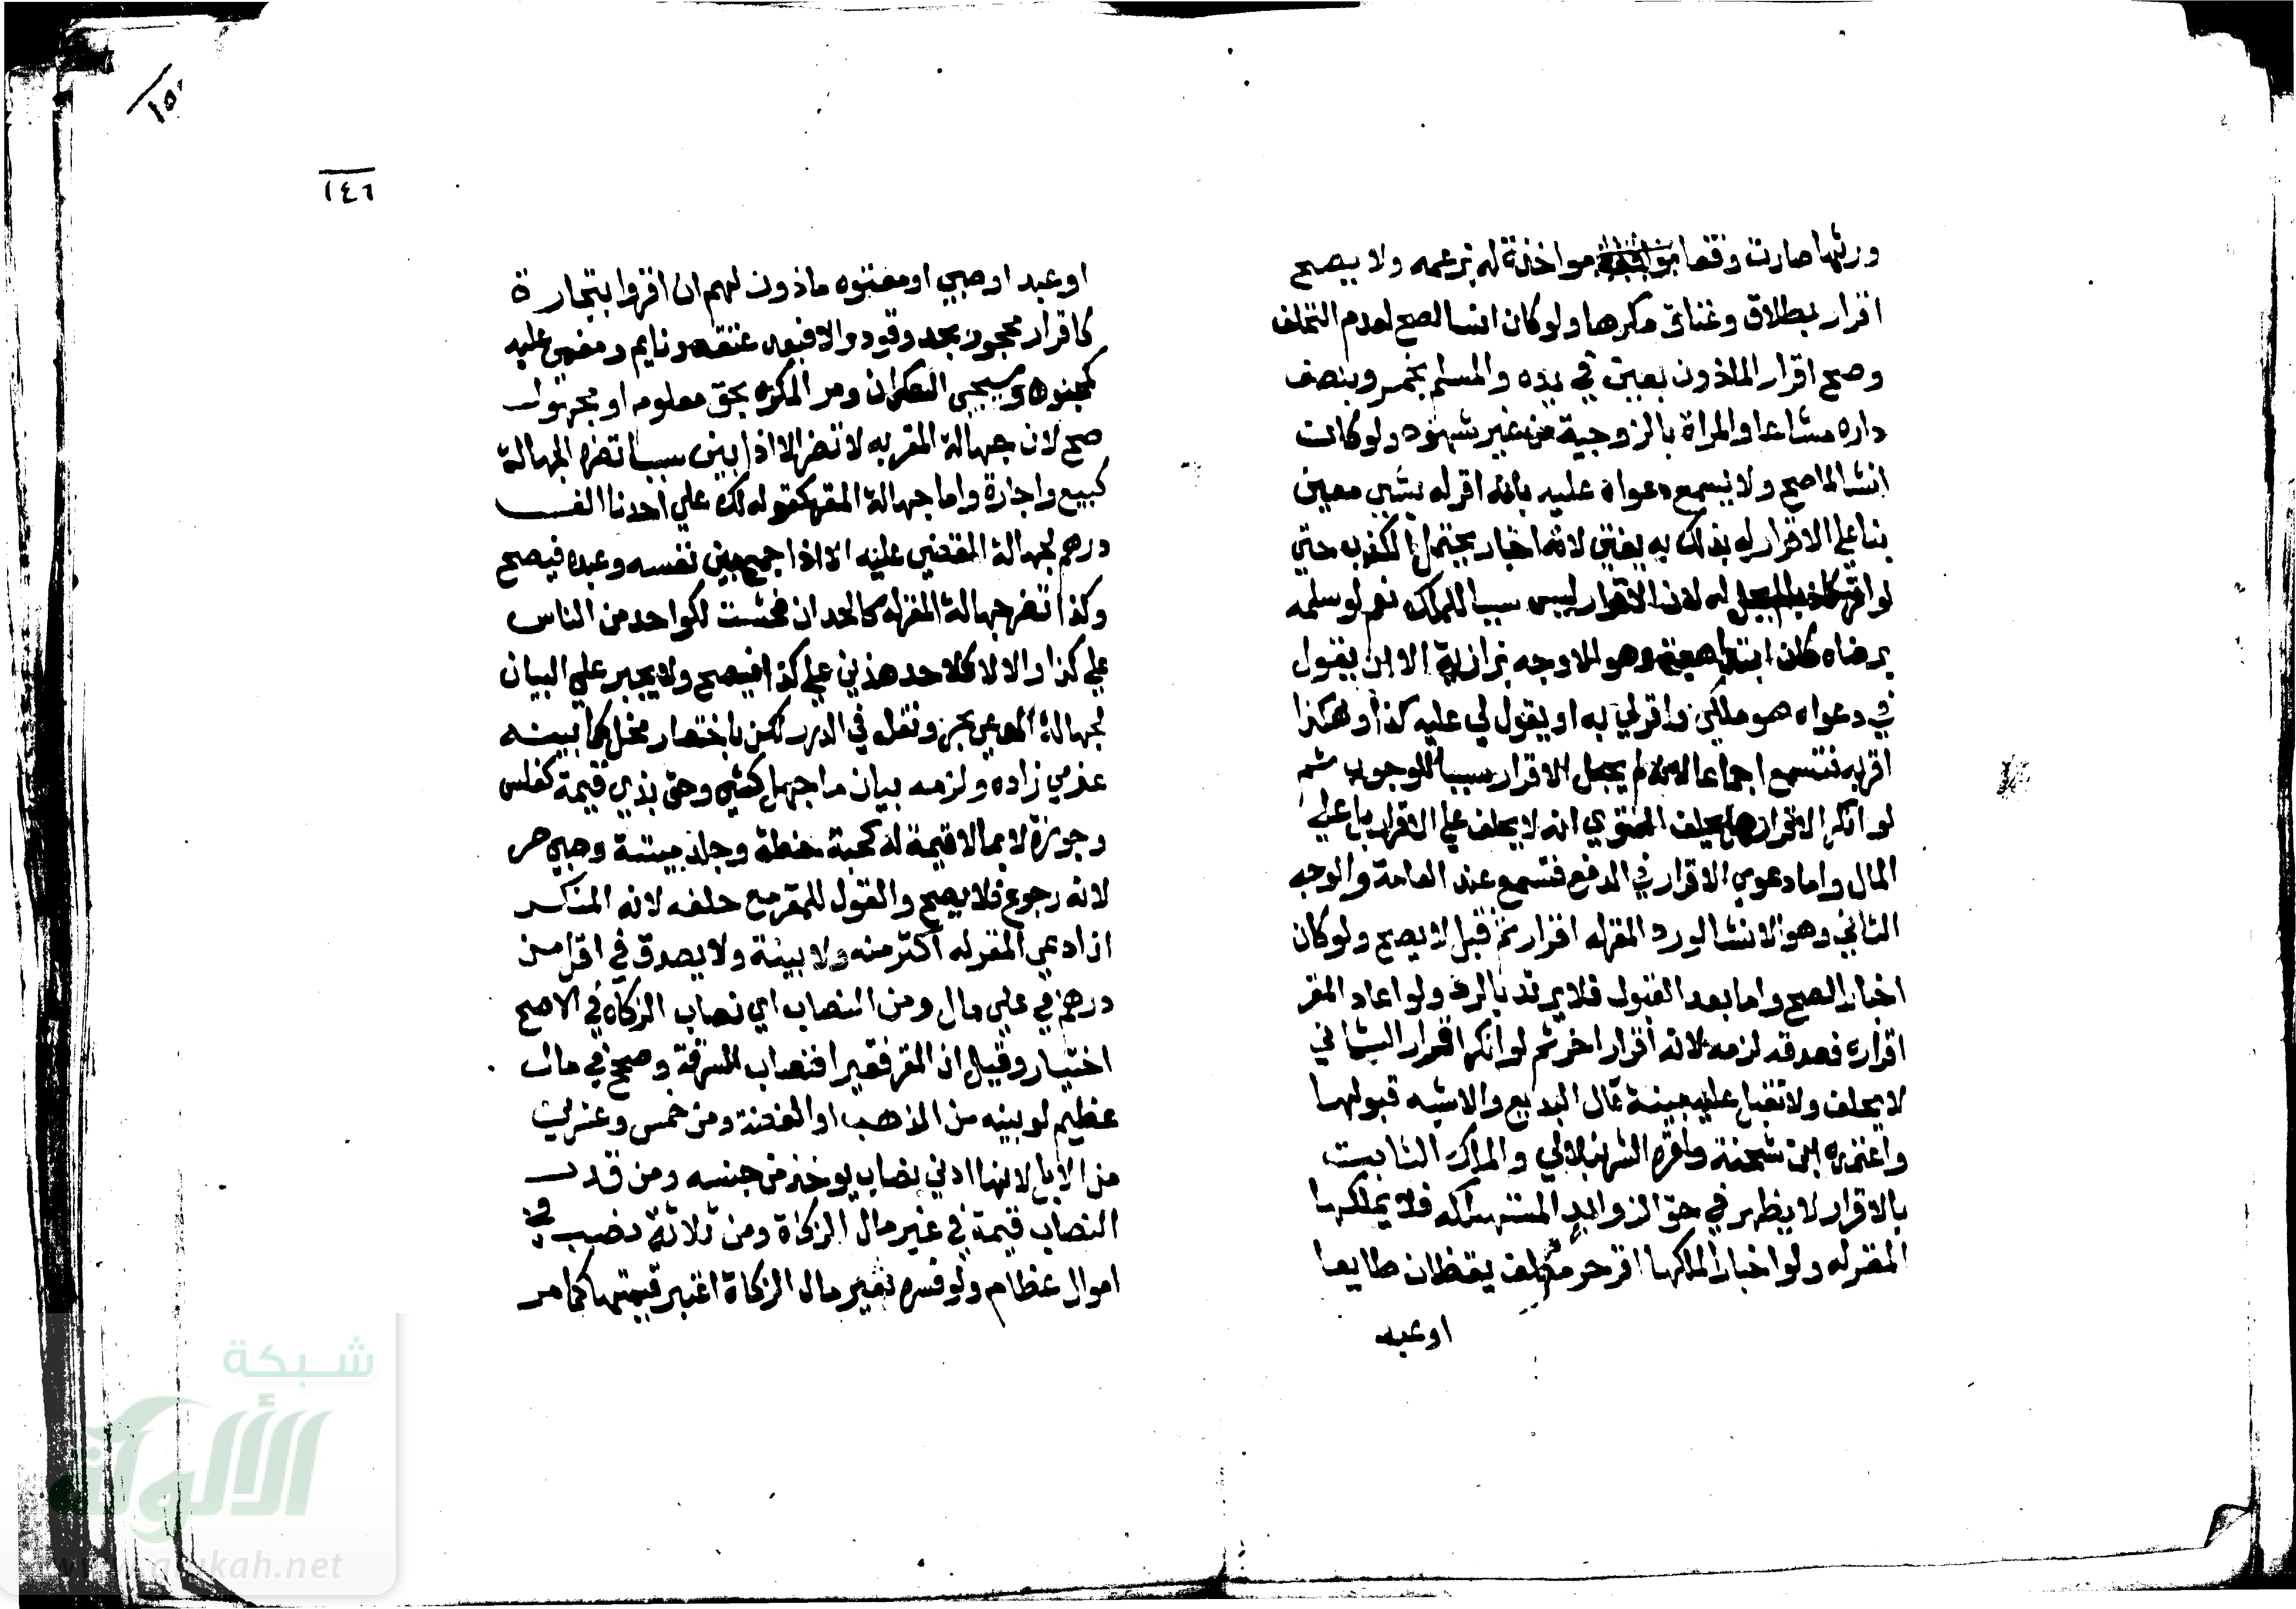 ورثها صارت وقفا مواخذة له بزعمه ولا يصح
اقرار بطلاق وعتاق مكرها ولو كان انشا لصح لعدم التخلف
وصح اقرار الماذون بعين في يده والمسلم بخمر وبنصف
داره مشاعا والمراة بالزوجية من غير شهود ولو كانت
انشا لما صح ولا يسمع دعواه عليه بانه اقر له بشي معين
بنا علي الاقرار له بذلك به يفتي لانه اخبار يحتمل الكذب حتي
لو اقر كاذبا لم يحل له لان الاقرار ليس سببا للملك نعم لو سلمه
برضاه كان ابتدا هبة وهو الاوجه بزازية الا ان يقول
في دعواه هو ملكي واقر لي به او يقول لي عليه كذا وهكذا
اقر به فتسمع اجماعا لانه لم يجعل الاقرار سببا للوجوب ثم
لو انكر الاقرار هل يحلف الفتوي انه لا يحلف علي الاقرار بل علي
المال واما دعوي الاقرار في الدفع فتسمع عند العامة والوجه
الثاني وهو الانشا لو رد المقر له اقراره ثم قبل لا يصح ولو كان
اخبارا لصح واما بعد القبول فلا يرتد بالرد ولو اعاد المقر
اقراره فصدقه لزمه لانه اقرار اخر ثم لو انكر اقراره الثاني
لا يحلف ولا تقبل عليه بينة قال البديع والاشبه قبولها
واعتمده ابن شحنة واقره الشرنبلالي والملك الثابت
بالاقرار لا يظهر في حق الزوايد المستهلكه فلا يملكها
المقر له ولو اخبارا لملكها اقر حر مكلف يقظان طايعا
او عبد
١٥
١٤٦
او عبد او صبي او معتوه ماذون لهم ان اقروا بتجارة
كاقرار محجور بحد وقود والا فبعد عتقه ونايم ومغمي عليه
كمجنون وسيجي السكران ومر المكره بحق معلوم او مجهول
صح لان جهالة المقر به لا تضر الا اذا بين سببا تضره الجهالة
كبيع واجارة واما جهالة المقر كقوله لك علي احدنا الف
درهم لجهالة المقضي عليه الا اذا جمع بين نفسه وعبده فيصح
وكذا تضر جهالة المقر له كالحد ان فحشت لكواحد من الناس
علي كذا والا لا كلاحد هذين علي كذا فيصح ولا يجبر علي البيان
لجهالة المدعي بحر ونقله في الدرر لكن باختصار مخل كما بينه
عزمي زاده ولزمه بيان ما جهل كشي وحق بذي قيمة كفلس
وجوزة لا بما لا قيمة له كحبة حنطة وجلد ميتة وصبي حر
لانه رجوع فلا يصح والقول للمقر مع حلفه لانه المنكر
ان ادعي المقر له اكثر منه ولا بينة ولا يصدق في اقل من
درهم في علي مال ومن النصاب اي نصاب الزكاة في الاصح
اختيار وقيل ان المقر فقيرا فنصاب السرقة وصحح في مال
عظيم لو بينه من الذهب او الفضة ومن خمس وعشرين
من الابل لانها ادني نصاب يوخذ من جنسه ومن قدر
النصاب قيمة في غير مال الزكاة ومن ثلاثة نصب في
اموال عظام ولو فسره بغير مال الزكاة اعتبر قيمتها كما مر
شبكة
الألوكة
www.alukah.net